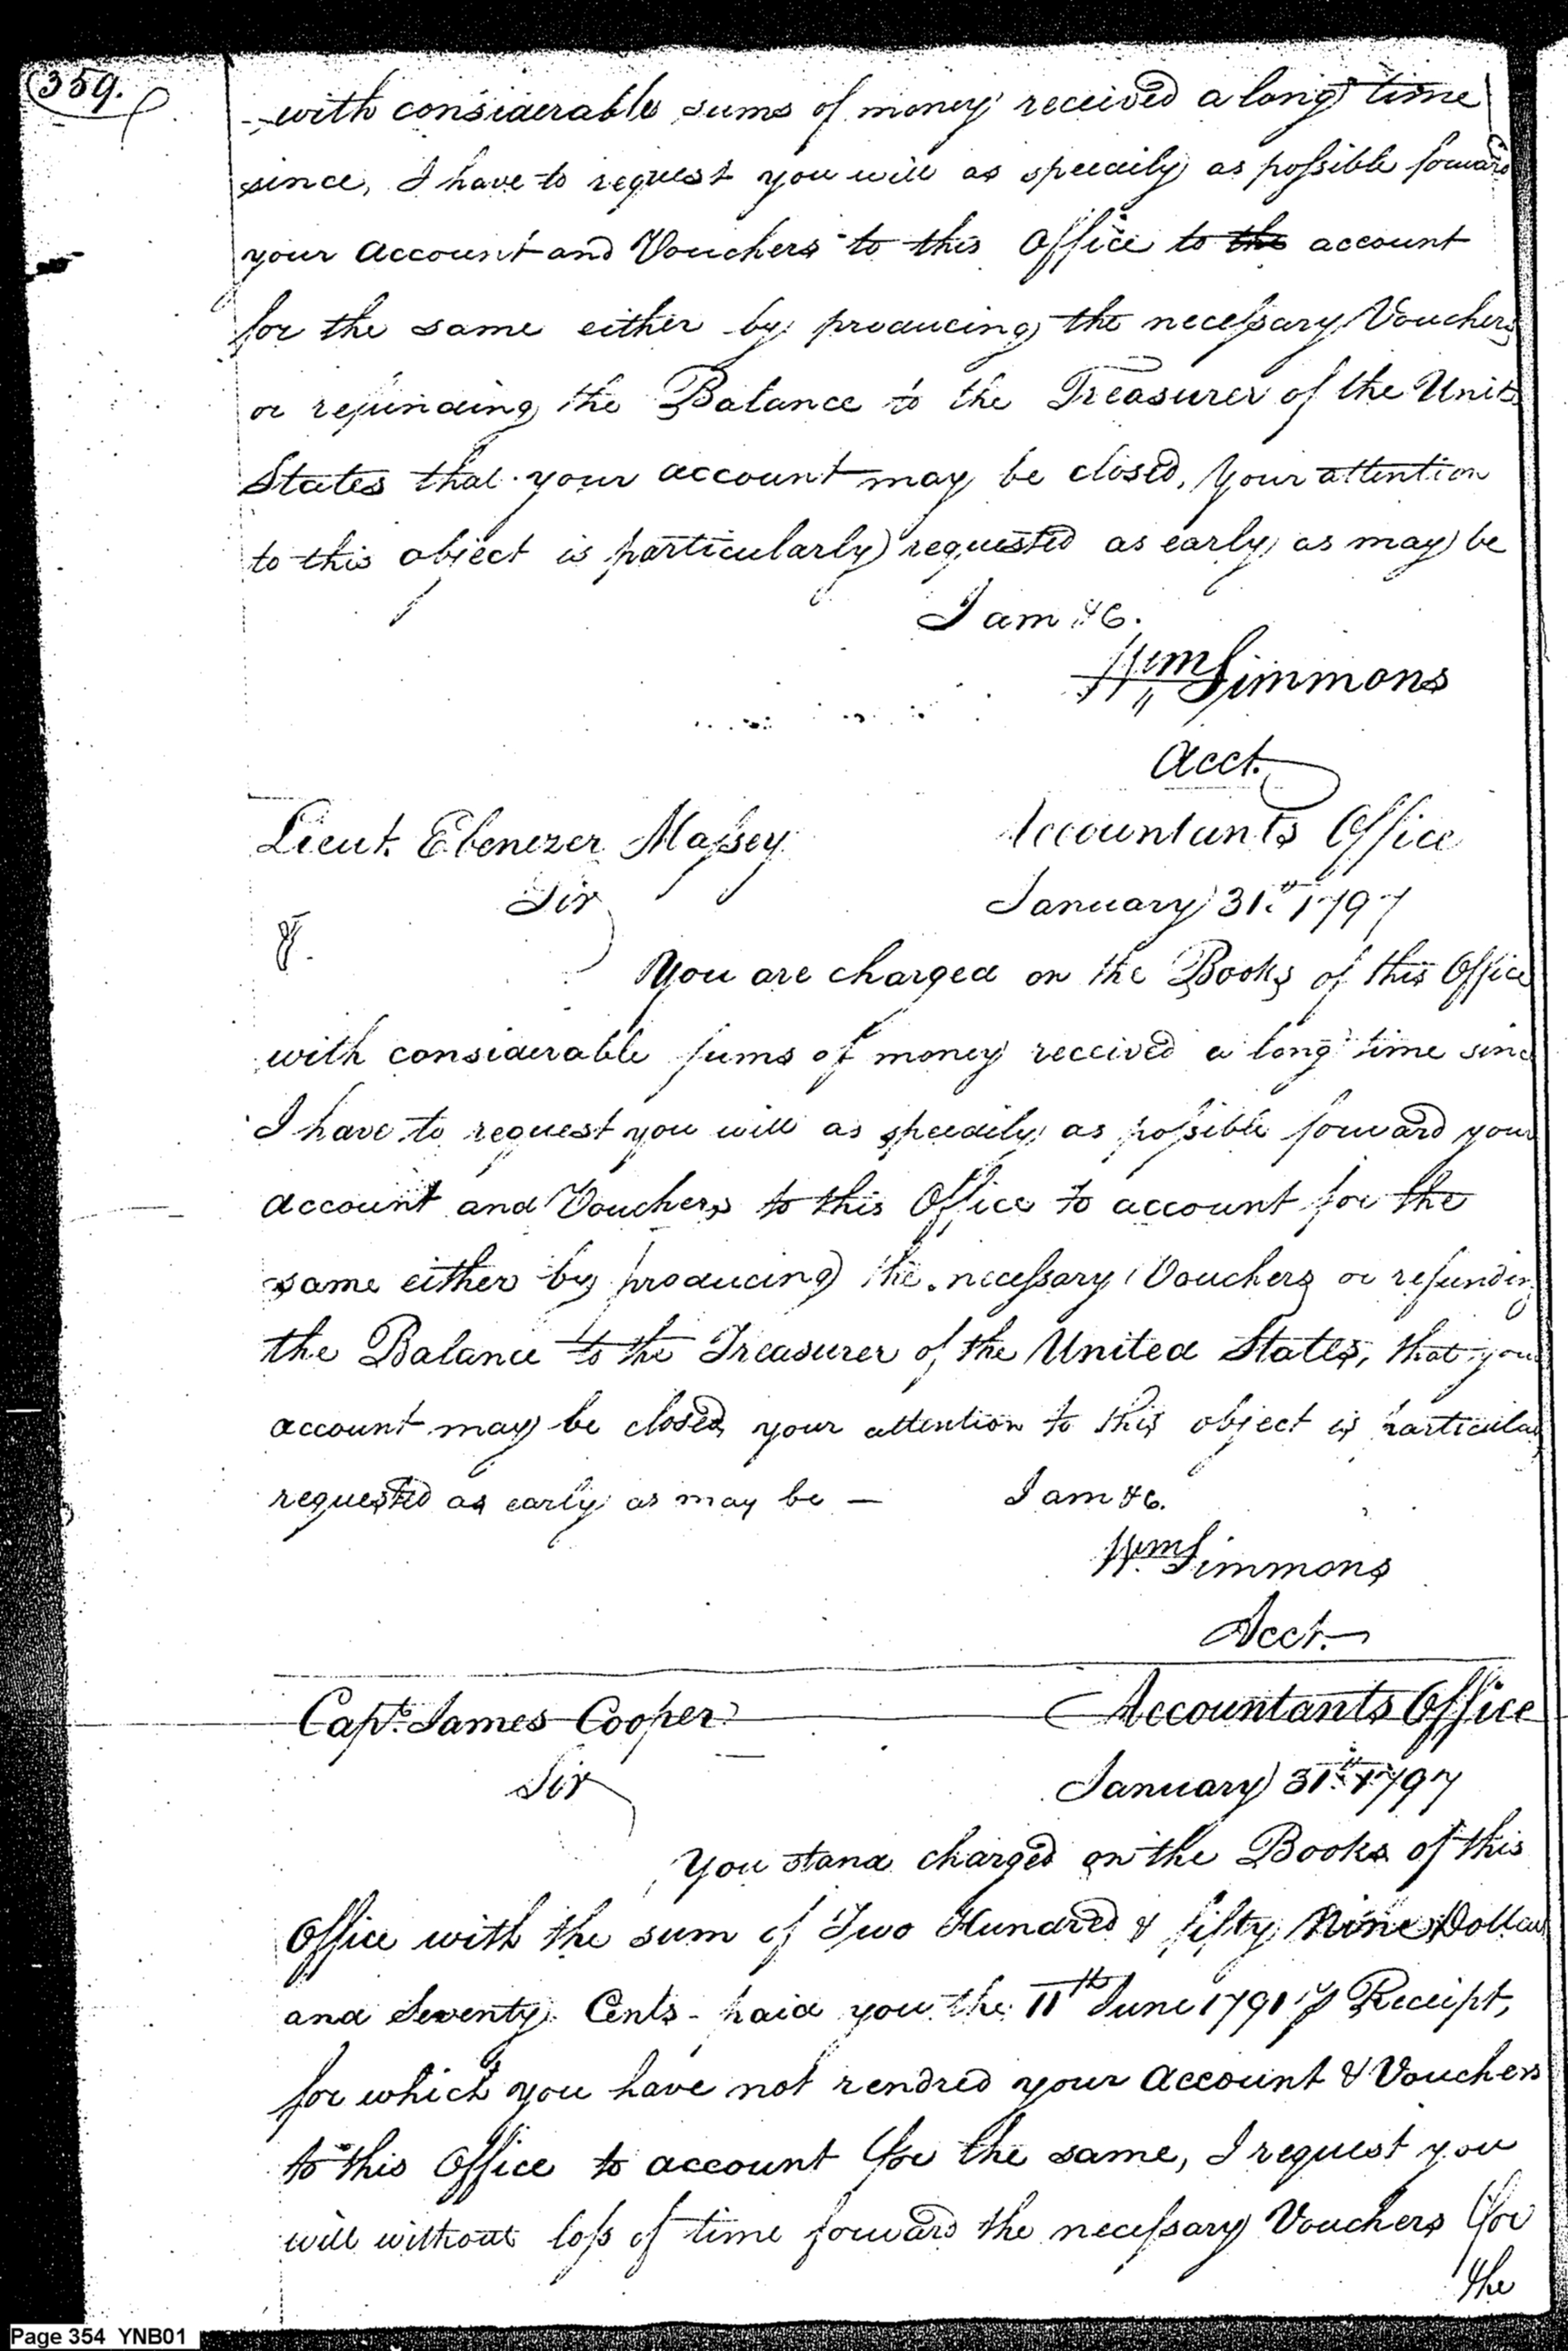 359.
with considerable sums of money received a long time
since, I have to request you will as speedily as possible forward
your account and Vouchers to this Office to the account
for the same either by producing the necessary Vouchers
or refunding the Balance to the Treasurer of the Unit
States that your account may be closed, Your attention
to this object is particularly requested as early as may be
I am &c.
Wm Simmons
Acct.
Lieut. Ebenezer Massey
Accountants Office
Sir
January 31st 1797
You are charged on the Books of this Office
with considerable sums of money received a long time sinc
I have to request you will as speedily as possible forward your
account and Vouchers to this Office to account for the
same either by producing the necessary Vouchers or refunding
the Balance to the Treasurer of the United States, that your
account may be closed, your attention to this object is particular
requested as early as may be —
I am &c.
Wm Simmons
Acct.
Capt. James Cooper
Accountants Office
Sir
January 31st 1797
You stand charged on the Books of this
Office with the sum of Two Hundred & fifty Nine Dollar
and Seventy Cents - paid you the 11th June 1791 ⅌ Receipt,
for which you have not rendred your account & Vouchers
to this Office to account for the same, I request you
will without loss of time forward the necessary Vouchers for
the
Page 354 YNB01